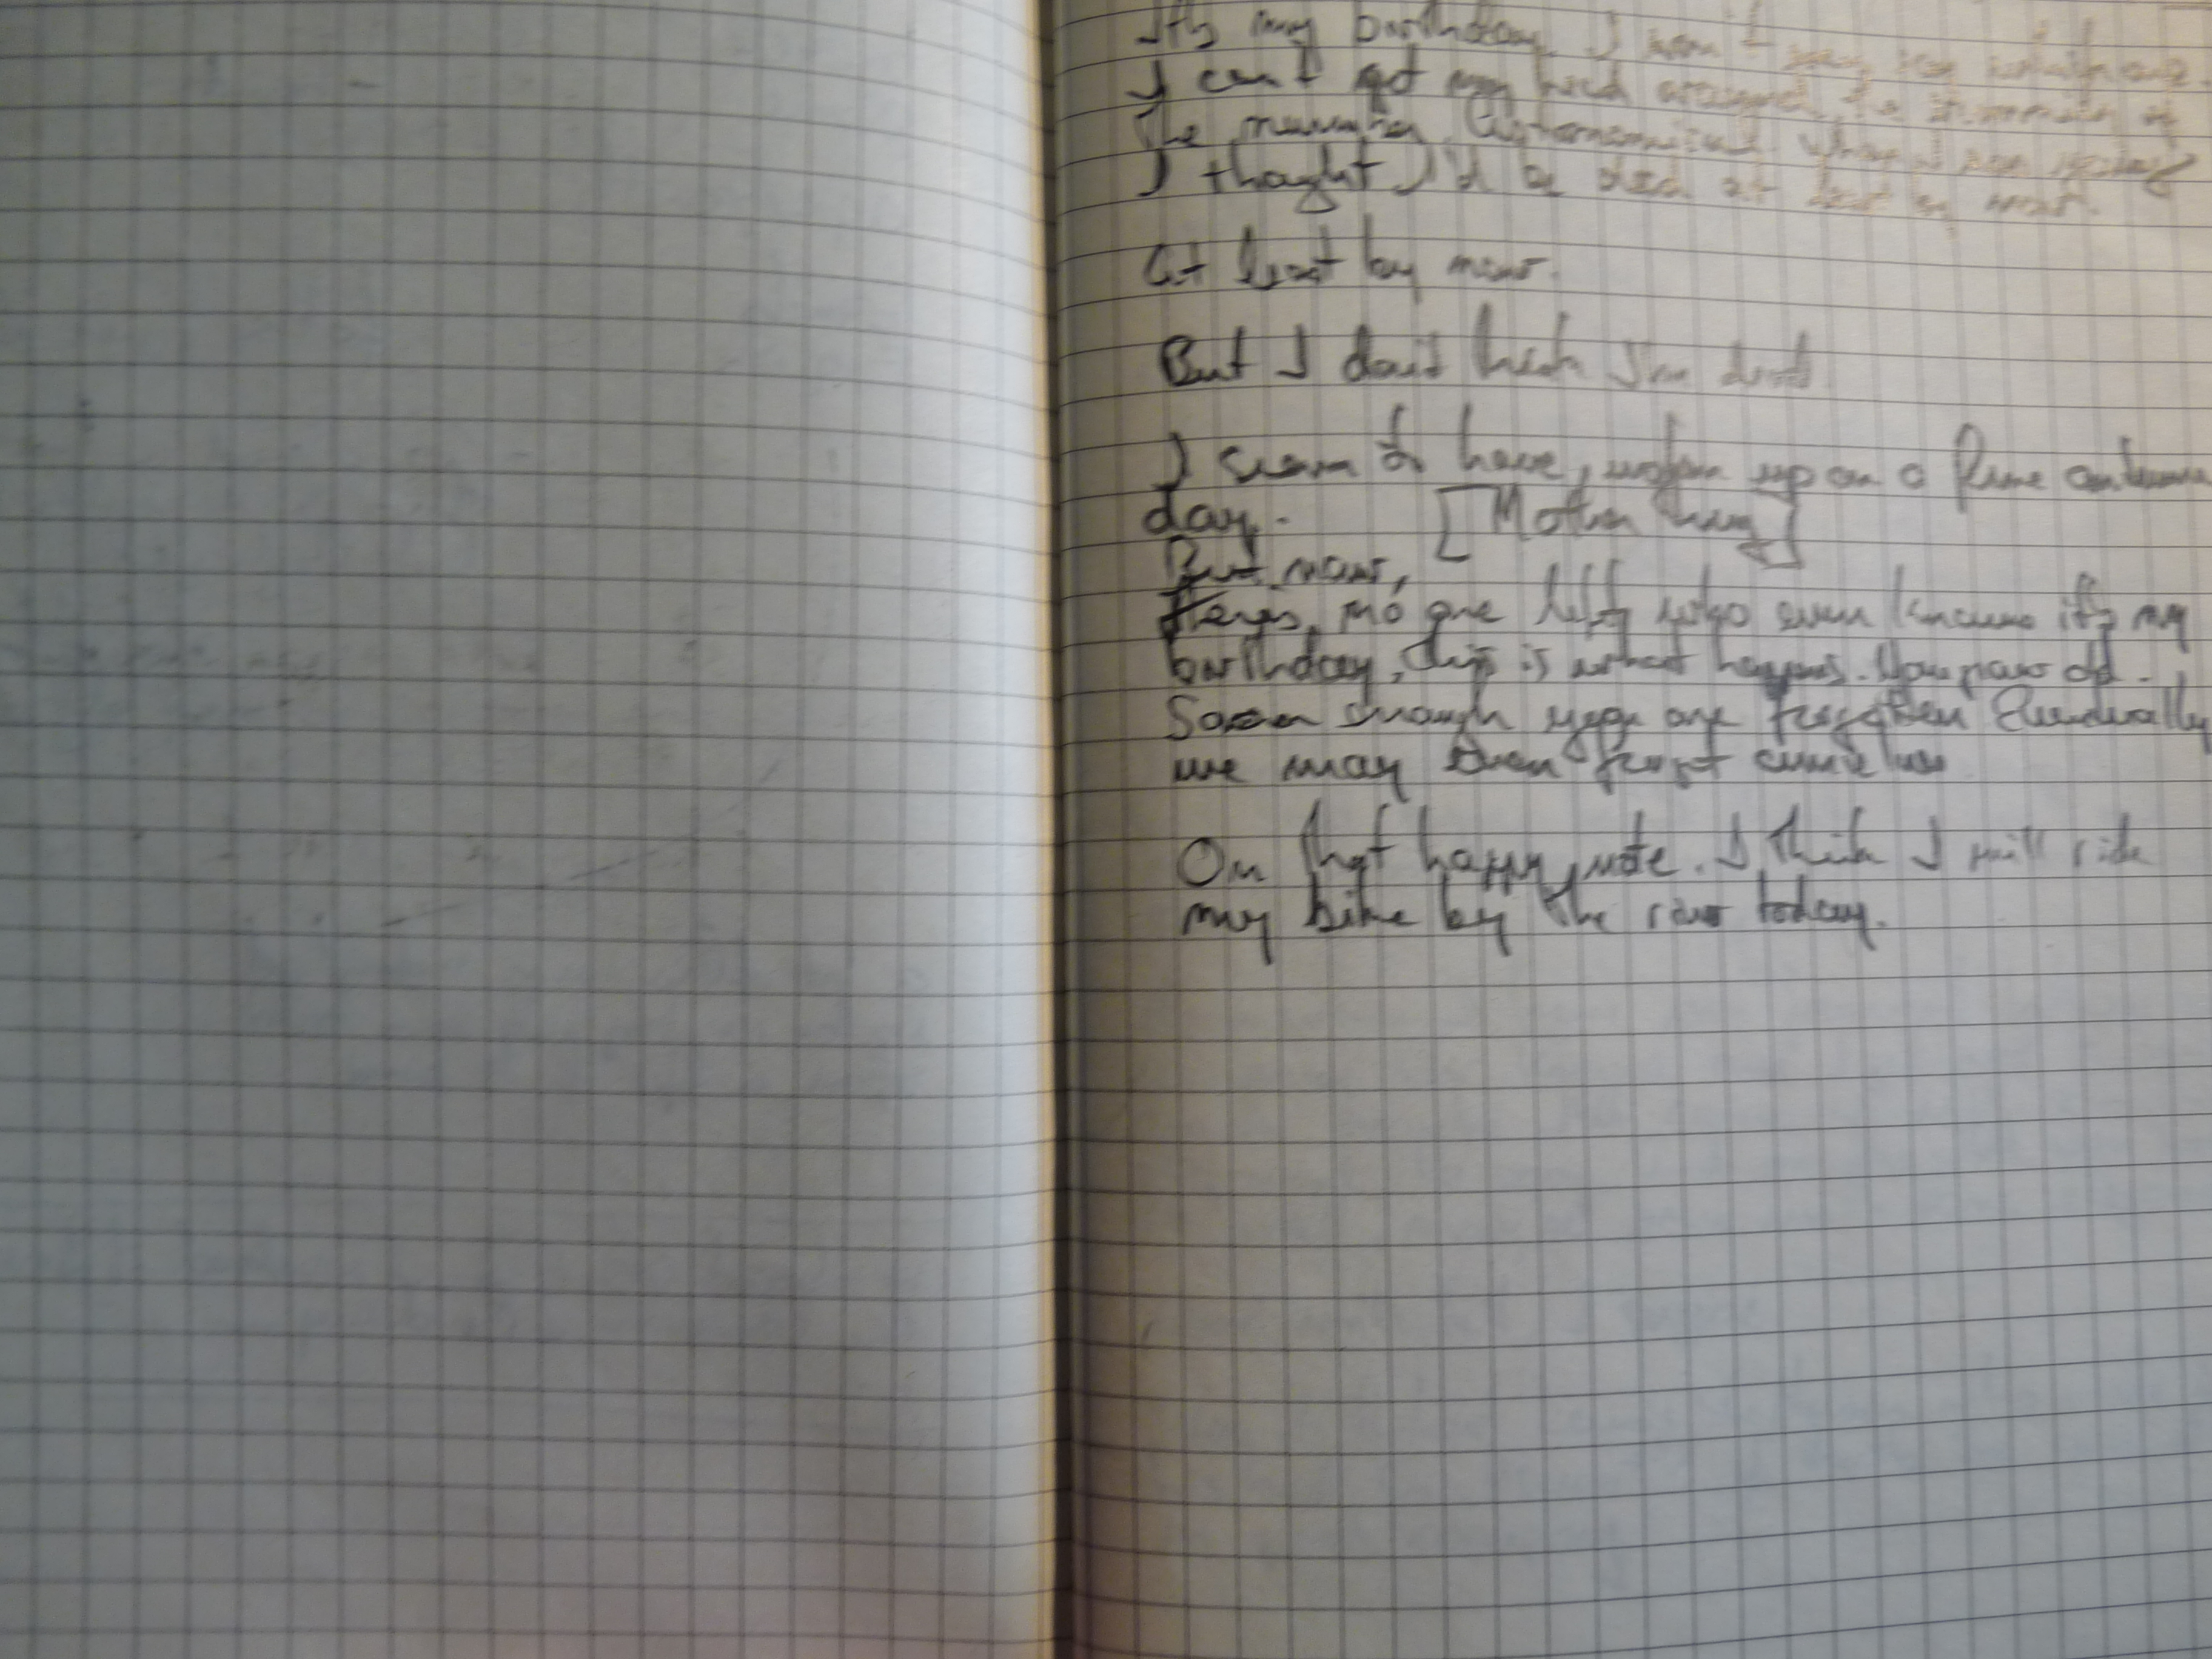 It's my birthday. I won't say which one
I can't get my head around the enormity of
the number. Astronomical. When I was young
I thought I'd be dead at least by now.
At least by now.
But I don't think I'm dead.
I seem to have, woken up on a fine autumn
day. [Mother
But now,
There's no one left who even knows it's my
birthday, this is what happens. You grow old.
Soon enough you are forgotten Eventually
we may even forget ourselves
On that happy note. I think I will ride
my bike by the river today.